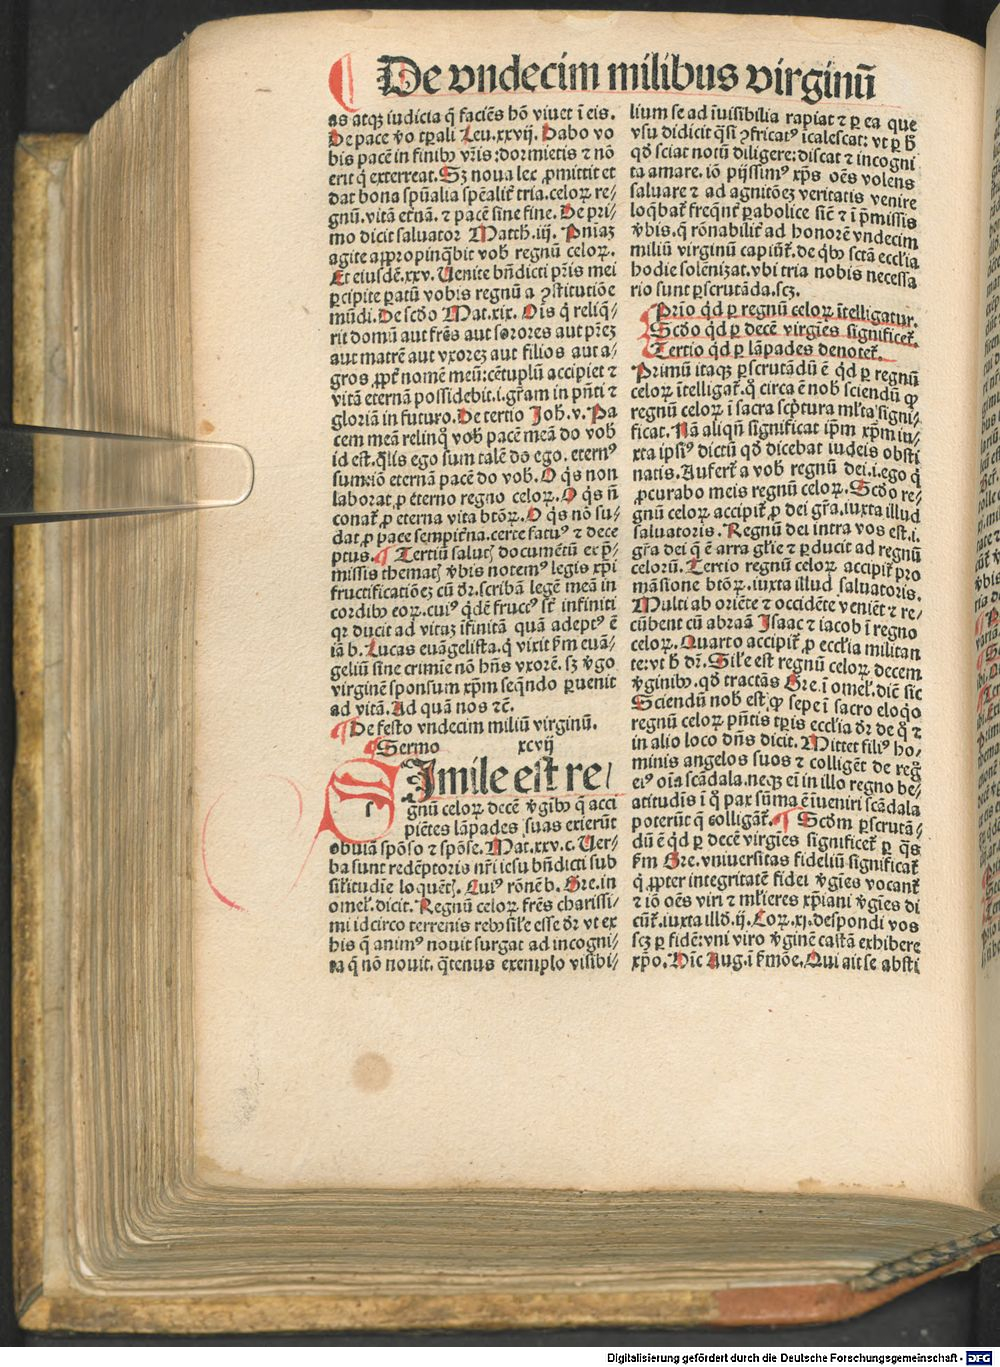 De vndecim milibus virginū
as atqꝫ iudicia q̄ faciēs hō viuet ī eis.
De pace ꝟo tꝑali Leu.xxvij. Dabo vo
bis pacē in finibꝰ vr̄is: dormietis ⁊ nō
erit q̄ exterreat. Sꝫ noua lex ꝓmittit et
dat bona spūalia spēalit̄ tria. celoꝝ re-
gnū. vitā et̄nā. ⁊ pacē sine fine. De pri-
mo dicit saluator Matth.iij. Pniaꝫ
agite appropinq̄bit vob̄ regnū celoꝝ.
Et eiusdē.xxv. Uenite bn̄dicti pr̄is mei
ꝑcipite ꝑatū vobis regnū a ꝯstitutiōe
mūdi. De scd̄o Mat.xix. Oīs q̄ reliq̄-
rit domū aut fr̄es aut sorores aut pr̄eꝫ
aut matrē aut vxoreꝫ aut filios aut a-
gros ꝓpt̄ nomē meū: cētuplū accipiet ⁊
vitā eternā possidebit.i.gr̄am in pn̄ti ⁊
gloriā in futuro. De tertio Joh̄.v. Pa
cem meā relinq̊ vob̄ pacē meā do vob̄
id est. q̄lis ego sum talē do ego. eternꝰ
sum iō eternā pacē do vob̄. O q̄s non
laborat ꝓ eterno regno celoꝝ. O q̄s n̄
conat̄ ꝓ eterna vita btōꝝ. O q̄s nō su-
dat ꝓ pace sempit̄na. certe fatuꝰ ⁊ dece
ptus. ¶ Tertiū salutꝭ documētū ex p̄-
missis thematꝭ ꝟbis notemꝰ legis xp̄i
fructificatiōeꝫ cū dr̄. scribā legē meā in
cordibꝰ eoꝝ. cuiꝰ q̄dē fructꝰ st̄ infiniti
qꝛ ducit ad vitaꝫ īfinitā quā adeptꝰ ē
iā b. Lucas euāgelista. q̄ vixit ẜm euā-
geliū sine crimīe nō hn̄s vxorē. sꝫ ꝟgo
virginē sponsum xp̄m seq̄ndo ꝑuenit
ad vitā. Ad quā nos ⁊c̄.
¶ De festo vndecim miliū virginū.
¶ Sermo xcvij
SImile est re-
gnū celoꝝ decē ꝟgibꝰ q̄ acci
piētes lāpades suas exierūt
obuiā spōso ⁊ spōse. Mat.xxv.c. Uer-
ba sunt redēptoris nr̄i iesu bn̄dicti sub
silitudīe loquētꝭ. Cuiꝰ rōnē b. Gre. in
omel̄. dicit. Regnū celoꝝ fr̄es charissi-
mi idcirco terrenis rebꝰ sil̄e esse dr̄ vt ex
his q̄ animꝰ nouit surgat ad incogni-
ta q̄ nō nouit. q̄tenus exemplo visibi-
lium se ad īuisibilia rapiat ⁊ ꝑ ea que
vsu didicit q̄si ꝯfricatꝰ īcalescat: vt ꝑ h̄
qd̄ sciat notū diligere: discat ⁊ incogni
ta amare. iō pijssimꝰ xp̄s oēs volens
saluare ⁊ ad agnitōeꝫ veritatis venire
loq̄bat̄ freq̄nt̄ ꝑabolice sic̄ ⁊ ī p̄missis
ꝟbis. q̄ rōnabilit̄ ad honorē vndecim
miliū virginū capiūt̄. de q̄bꝰ sctā eccl̄ia
hodie solēnizat. vbi tria nobis necessa
rio sunt ꝑscrutāda. scꝫ.
Prio q̄d ꝑ regnū celoꝝ ītelligatur.
Scd̄o q̄d ꝑ decē virgīes significet̄.
Tertio q̄d ꝑ lāpades denotet̄.
Primū itaqꝫ ꝑscrutādū ē q̄d ꝑ regnū
celoꝝ ītelligat̄. q̊ circa ē nob̄ sciendū ꝙ
regnū celoꝝ ī sacra scptura ml̄ta signi-
ficat. Nā aliqn̄ significat ip̄m xp̄m iu-
xta ipsiꝰ dictū qd̄ dicebat iudeis obsti
natis. Aufert̄ a vob̄ regnū dei.i.ego q̄
ꝓcurabo meis regnū celoꝝ. Scd̄o re-
gnū celoꝝ accipit̄ ꝓ dei gr̄a. iuxta illud
saluatoris. Regnū dei intra vos est.i.
gr̄a dei q̄ ē arra gl̄ie ⁊ ꝑducit ad regnū
celorū. Tertio regnū celoꝝ accipit̄ pro
māsione btōꝝ. iuxta illud saluatoris.
Multi ab oriēte ⁊ occidēte veniēt ⁊ re-
cūbent cū abraā Isaac ⁊ iacob ī regno
celoꝝ. Quarto accipit̄ ꝓ eccl̄ia militan
te: vt h̄ dr̄. Sil̄e est regnū celoꝝ decem
ꝟginibꝰ. qd̄ tractās Gre. ī omel̄. diē sic
Sciendū nob̄ est ꝙ sepe ī sacro eloq̊
regnū celoꝝ pn̄tis tꝑis eccl̄ia dr̄ de q̊ ⁊
in alio loco dn̄s dicit. Mittet filiꝰ ho-
minis angelos suos ⁊ colligēt de reg̊
eiꝰ oīa scādala. neqꝫ eī in illo regno be-
atitudīs ī q̊ pax sūma ē īueniri scādala
poterūt q̄ colligāt̄. ¶ Scd̄m ꝑscrutā-
dū ē q̄d ꝑ decē virgīes significet̄ ꝑ q̄s
ẜm Gre. vniuersitas fideliū significat̄
q̄ ꝓpter integritatē fidei ꝟgīes vocant̄
⁊ iō oēs viri ⁊ ml̄ieres xp̄iani ꝟgīes di
cūt̄. iuxta illd̄.ij. Coꝝ.xj. despondi vos
scꝫ ꝑ fidē: vni viro ꝟginē castā exhibere
xp̄o. Dic̄ Aug. ī ẜmōe. Qui ait se absti